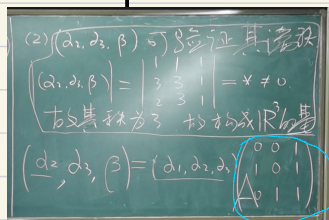 (2) (α₂,α₃,β) 可验证其行列式
|α₂,α₃,β| = | 1 1 1 ; 3 3 1 ; 2 3 1 | = * ≠ 0
故其秩为3 故构成ℝ³的基
(α₂, α₃, β) = (α₁,α₂,α₃) ( 0 0 1 ; 1 0 1 ; 0 1 1 )
A